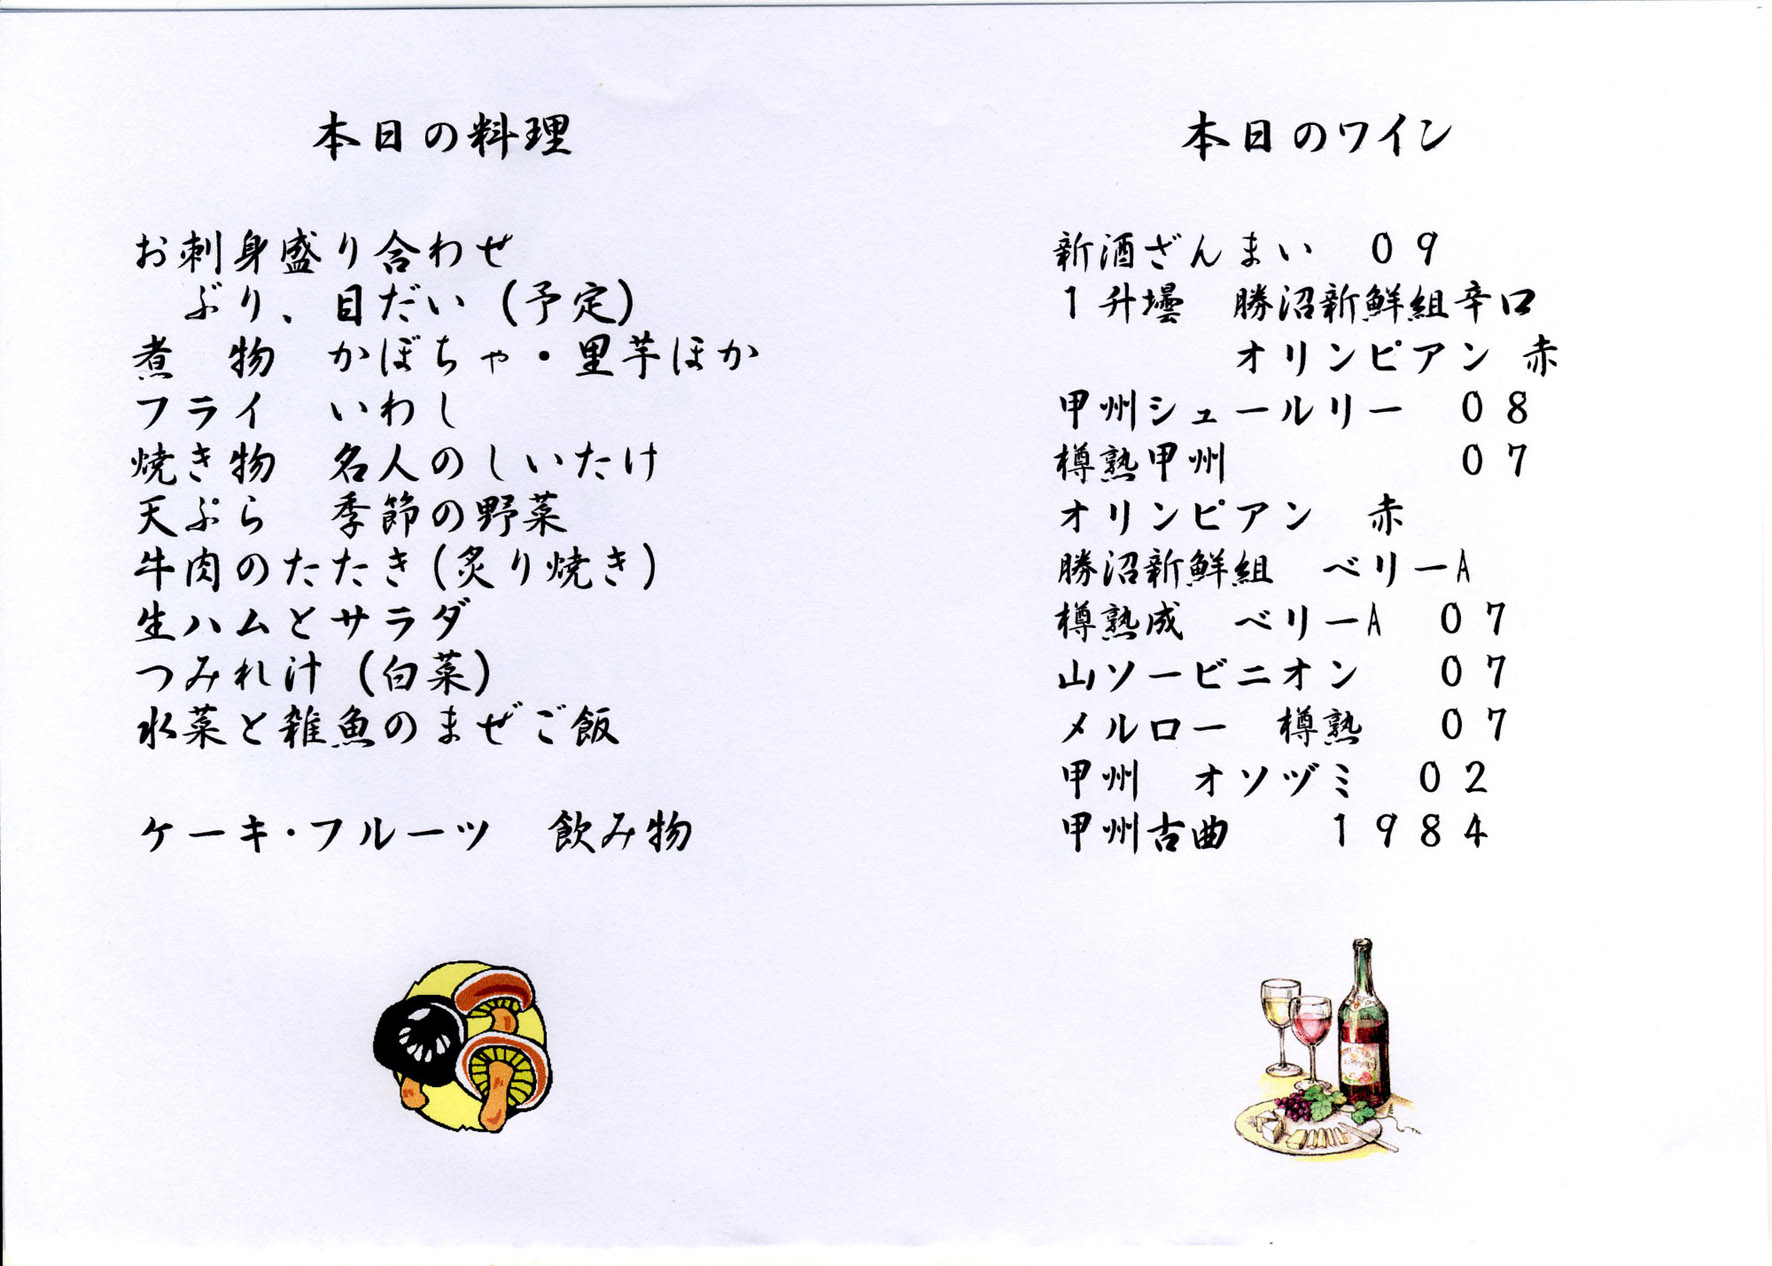 本日の料理
お刺身盛り合わせ
ぶり、目だい（予定）
煮　物　かぼちゃ・里芋ほか
フライ　いわし
焼き物　名人のしいたけ
天ぷら　季節の野菜
牛肉のたたき（炙り焼き）
生ハムとサラダ
つみれ汁（白菜）
水菜と雑魚のまぜご飯
ケーキ・フルーツ　飲み物
本日のワイン
新酒ざんまい　０９
１升壜　勝沼新鮮組辛口
オリンピアン 赤
甲州シュールリー　０８
樽熟甲州　０７
オリンピアン　赤
勝沼新鮮組　ベリーA
樽熟成　ベリーA　０７
山ソービニオン　０７
メルロー　樽熟　０７
甲州　オソヅミ　０２
甲州古曲　１９８４